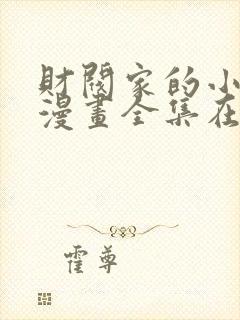 財閥家的小
漫畫全集在
霍尊